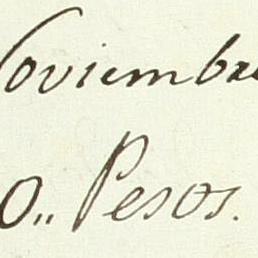 Noviembre
0,, Pesos.